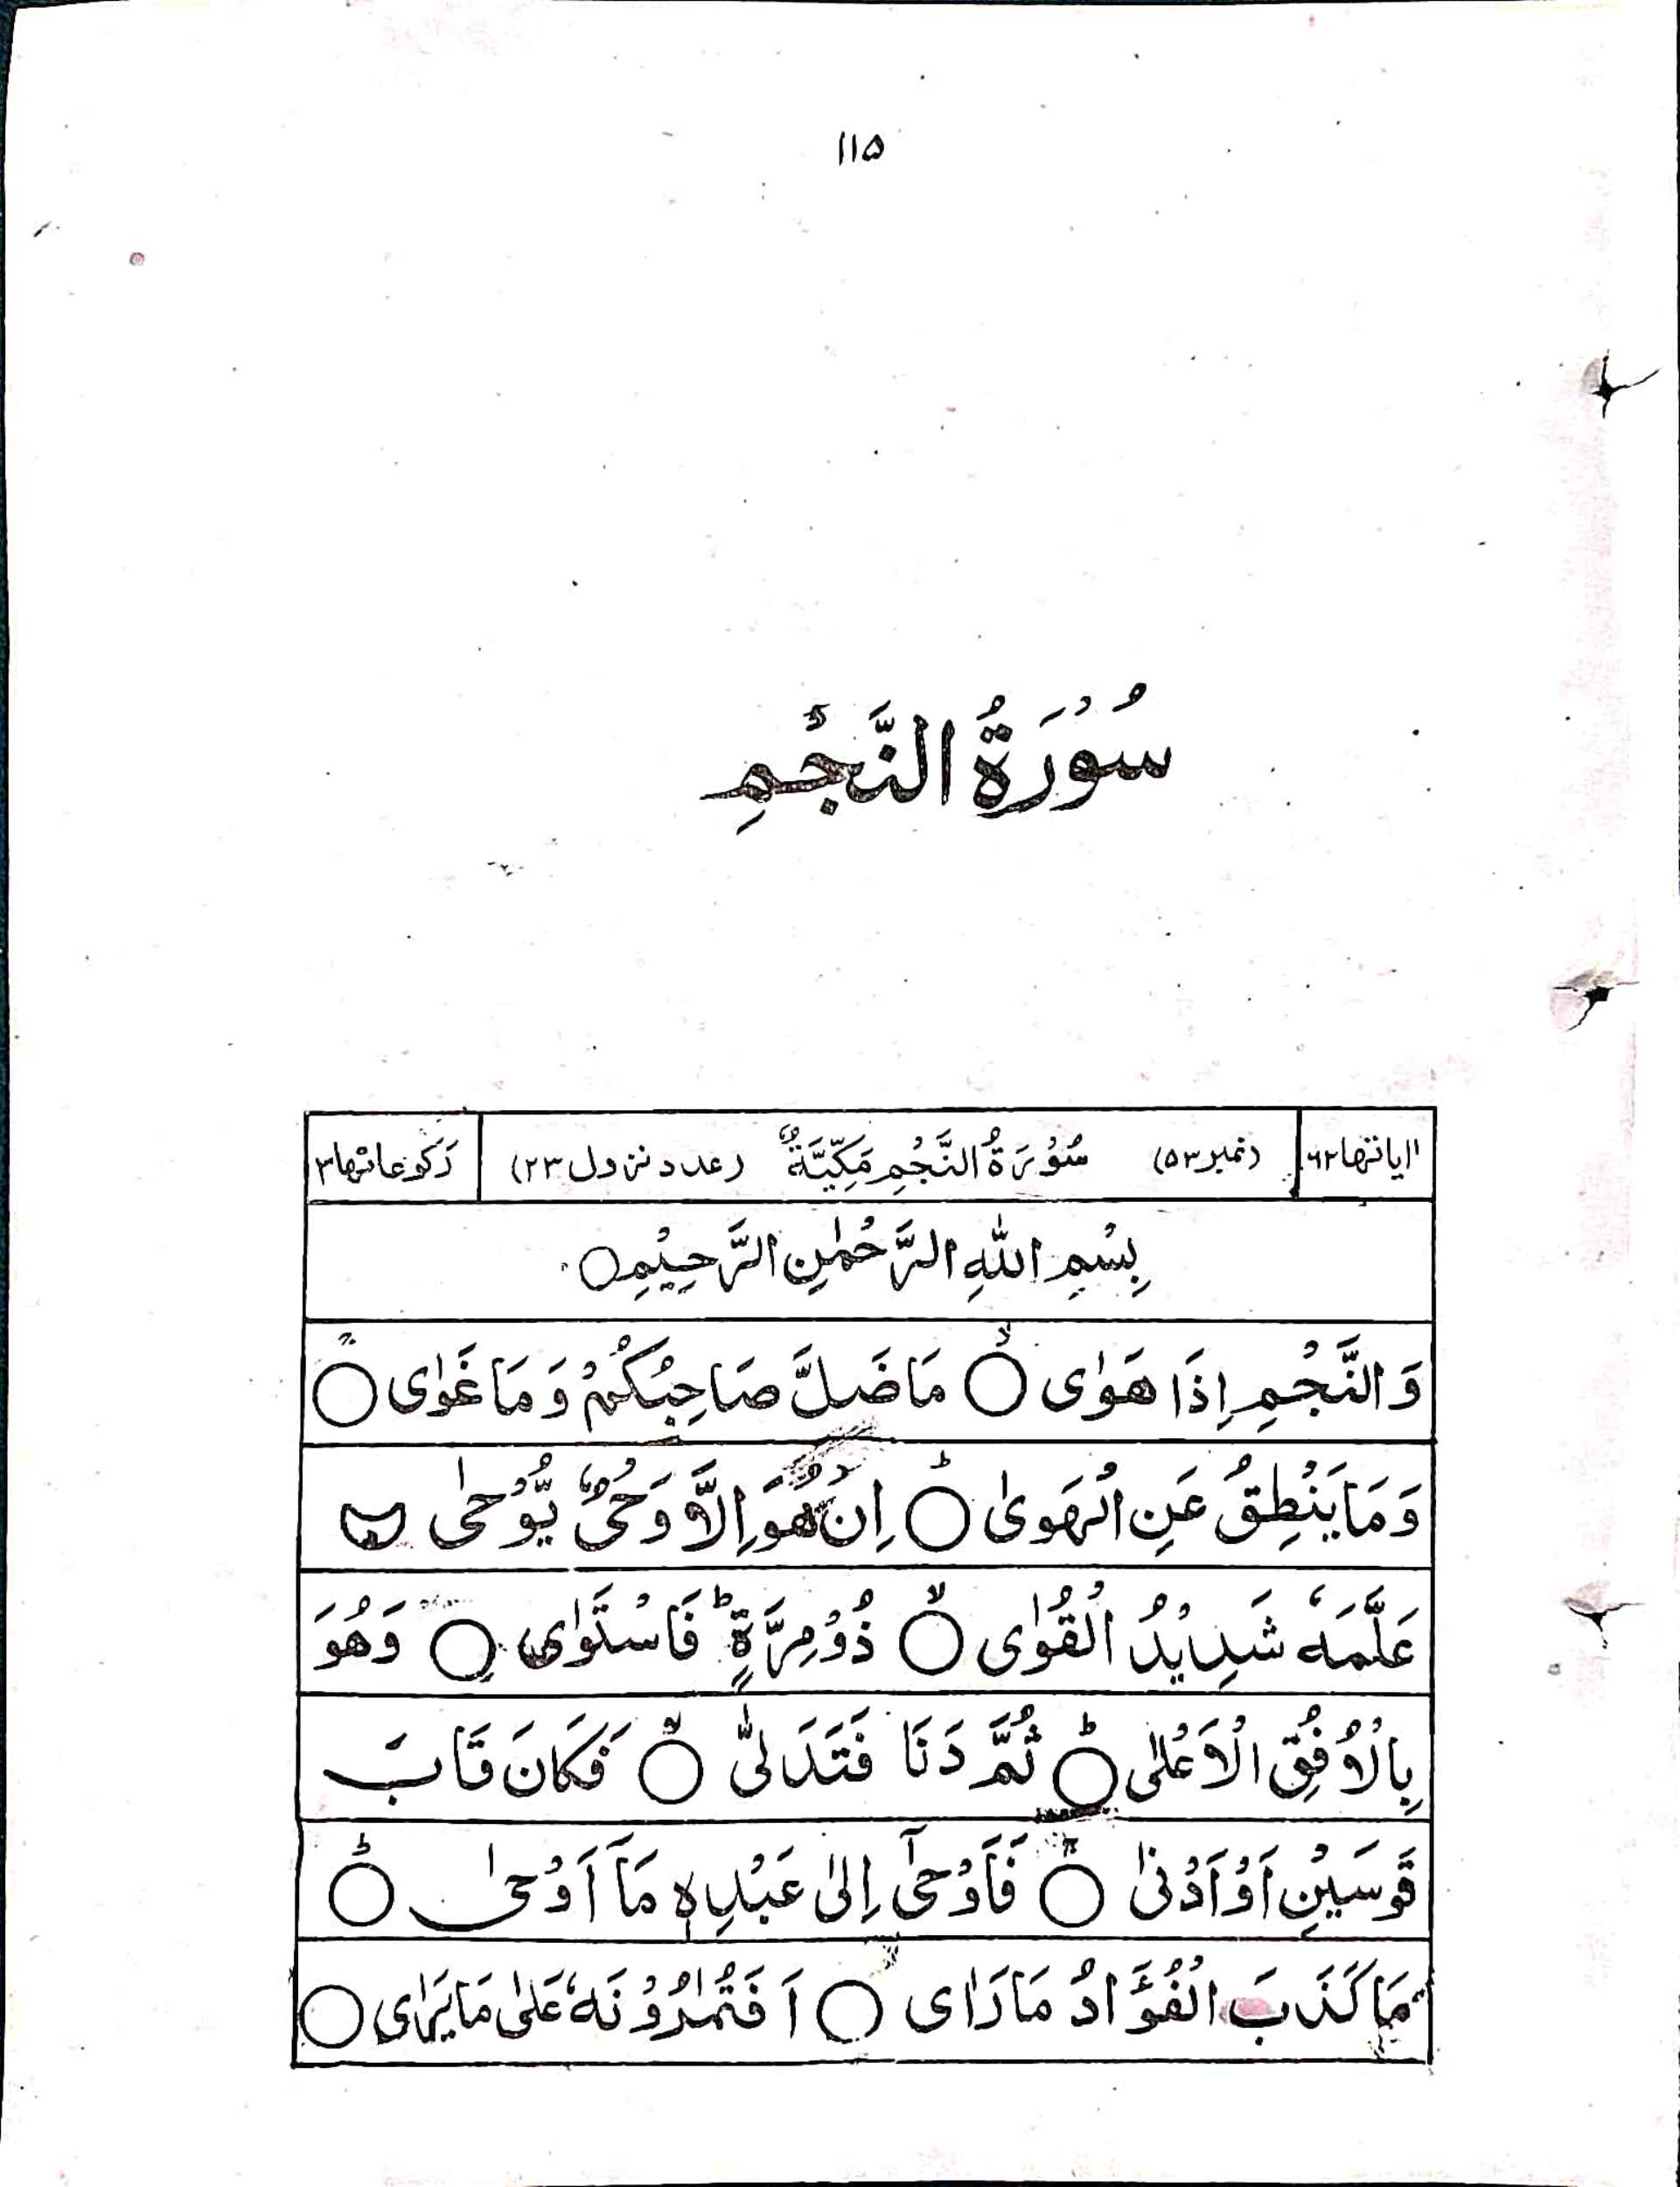 ۱۱۵
سُوْرَةُ النَّجْمِ
اٰیاتہا ۶۲ (نمبر ۵۳) سُوْرَةُ النَّجْمِ مَكِّيَّةٌ (عدد نزول ۲۳) رَكوعاتہا ۳
بِسْمِ اللّٰهِ الرَّحْمٰنِ الرَّحِيْمِ ○
وَ النَّجْمِ اِذَا هَوٰى ○ۙ مَا ضَلَّ صَاحِبُكُمْ وَ مَا غَوٰى ○ۚ
وَ مَا يَنْطِقُ عَنِ الْهَوىٰ ○ؕ اِنْ هُوَ اِلَّا وَحْيٌ يُّوْحٰى ○
عَلَّمَهٗ شَدِيْدُ الْقُوٰى ○ۙ ذُوْ مِرَّةٍ ؕ فَاسْتَوٰى ○ وَهُوَ
بِالْاُفُقِ الْاَعْلٰى ○ؕ ثُمَّ دَنَا فَتَدَلّٰى ○ۙ فَكَانَ قَابَ
قَوسَيْنِ اَوْ اَدْنٰى ○ۚ فَاَوْحٰٓى اِلٰى عَبْدِهٖ مَآ اَوْحٰى ○ؕ
مَا كَذَبَ الْفُؤَادُ مَا رَاٰى ○ اَفَتُمٰرُوْنَهٗ عَلٰى مَا يَرٰى ○